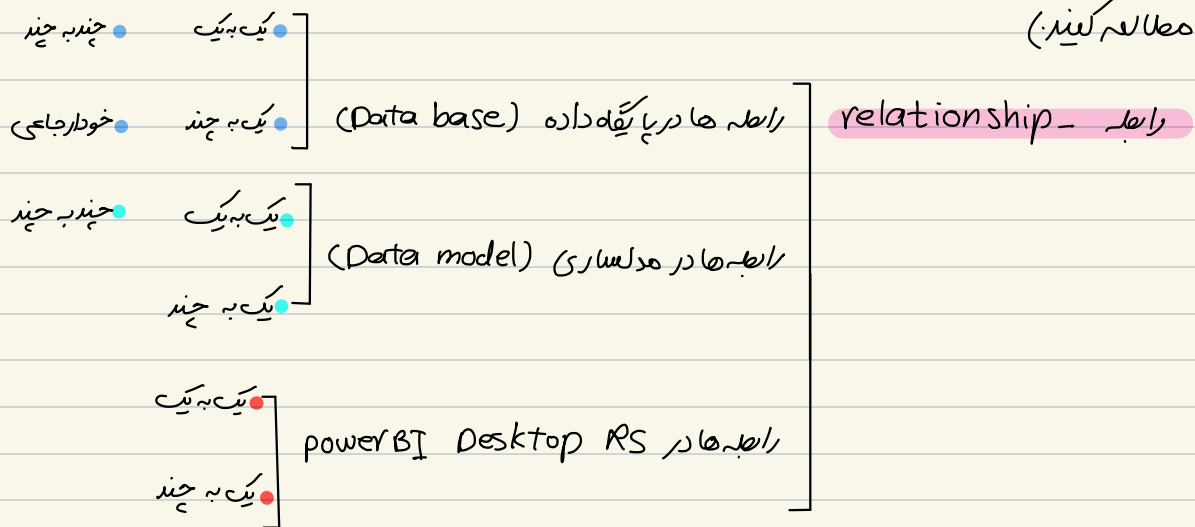 مطالعه کنید.)
رابطه - relationship
رابطه ها در پایگاه داده (Data base)
یک به یک
چند به چند
یک به چند
خودارجاعی
رابطه ها در مدلسازی (Data model)
یک به یک
چند به چند
یک به چند
رابطه ها در powerBI Desktop RS
یک به یک
یک به چند